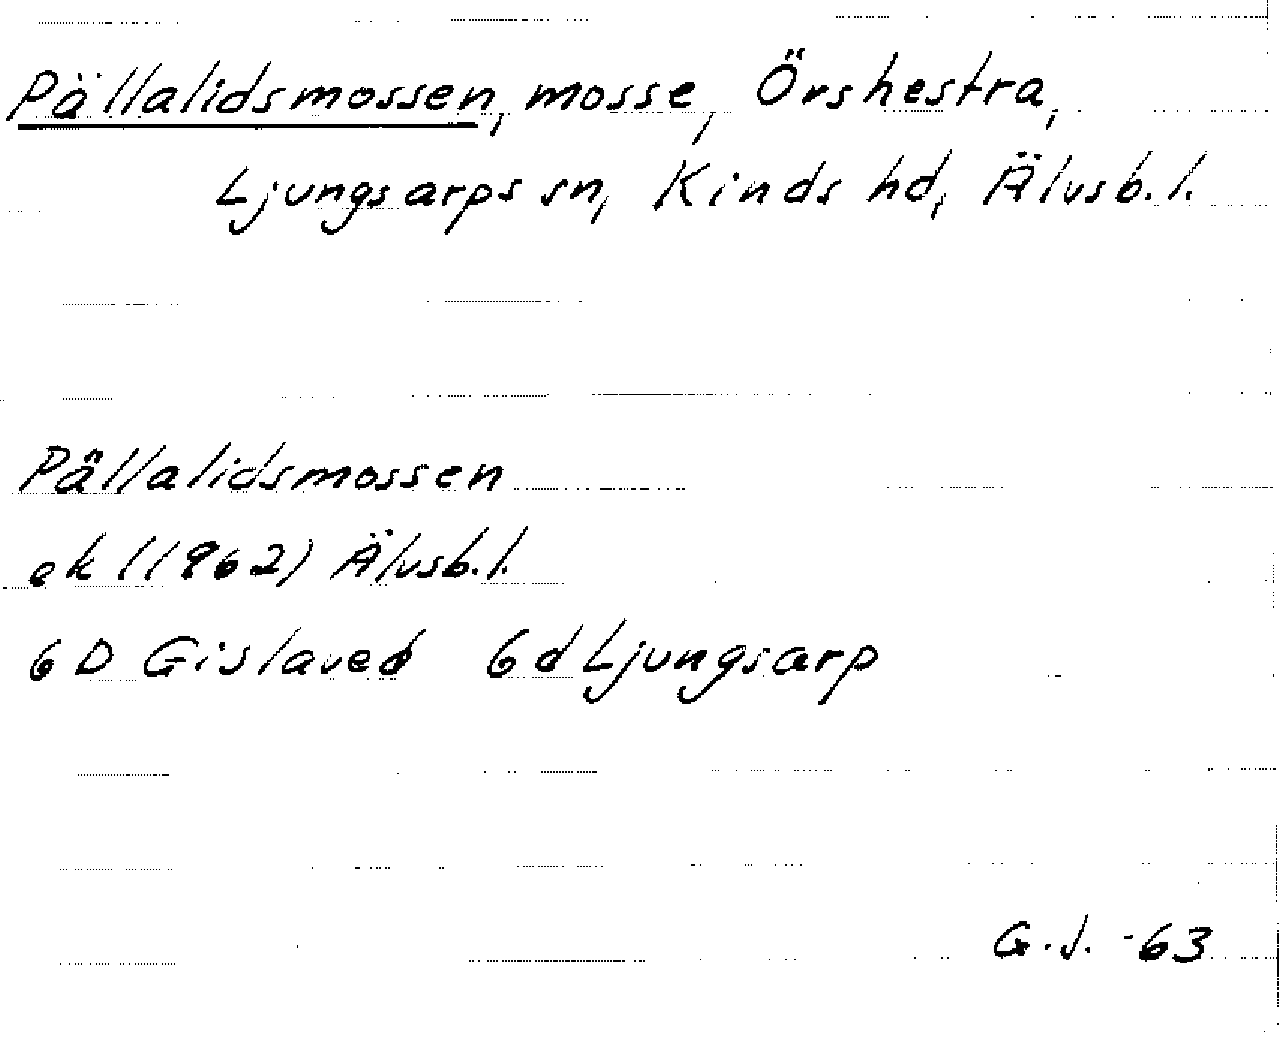 Pällalidsmossen, mosse, Örshestra,
Ljungsarps sn, Kinds hd, Älvsb. l.
Pällalidsmossen
ek (1962) Älvsb. l.
6 D Gislaved 6d Ljungsarp
G. J. -63